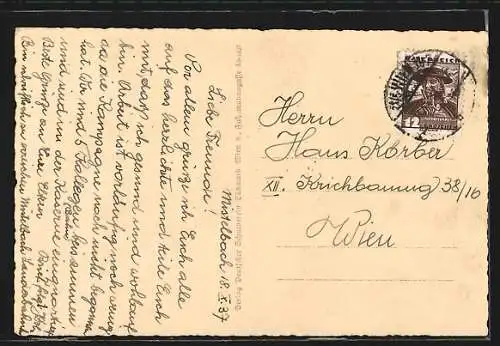 Mistelbach 18. X. 37
Liebe Freunde!
Vor allem grüsse ich Euch alle
auf das herzlichste und teile Euch
mit, daß ich gesund und wohlauf
bin. Arbeit ist vorläufig noch wenig
da die Kampagne noch nicht begonnen
hat. Wir sind 5 Kollegen beisammen
und sind in der Kaserne
Beste Grüße an Eure Eltern
Bin
Mistelbach Landesbahn
Herrn
Hans Körber
XII. Krichbaumg 38/16
Wien
ÖSTERREICH
12